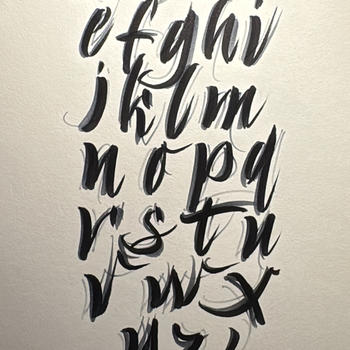 e f g h i
j k l m
n o p q
r s t u
v w x
y z